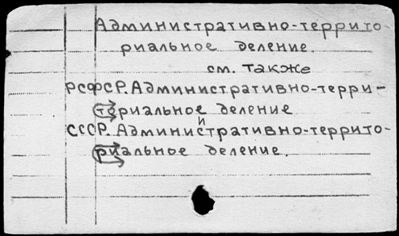 Административно-террито
риальное деление.
см. также
РСФСР. Административно-терри-
ториальное деление
и
СССР. Административно-террито-
риальное деление.